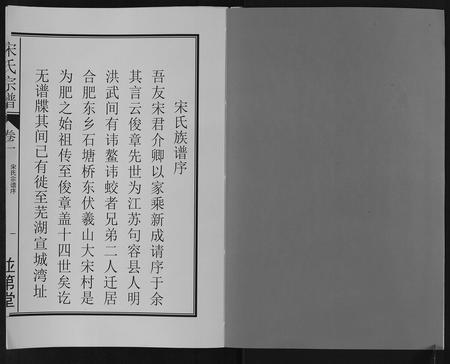 宋氏族谱序
吾友宋君介卿以家乘新成请序于余
其言云俊章先世为江苏句容县人明
洪武间有讳鳌讳蛟者兄弟二人迁居
合肥东乡石塘桥东伏羲山大宋村是
为肥之始祖传至俊章盖十四世矣讫
无谱牒其间已有徙至芜湖宣城湾址
宋氏宗谱
卷一
宋氏宗谱序
一
並第堂